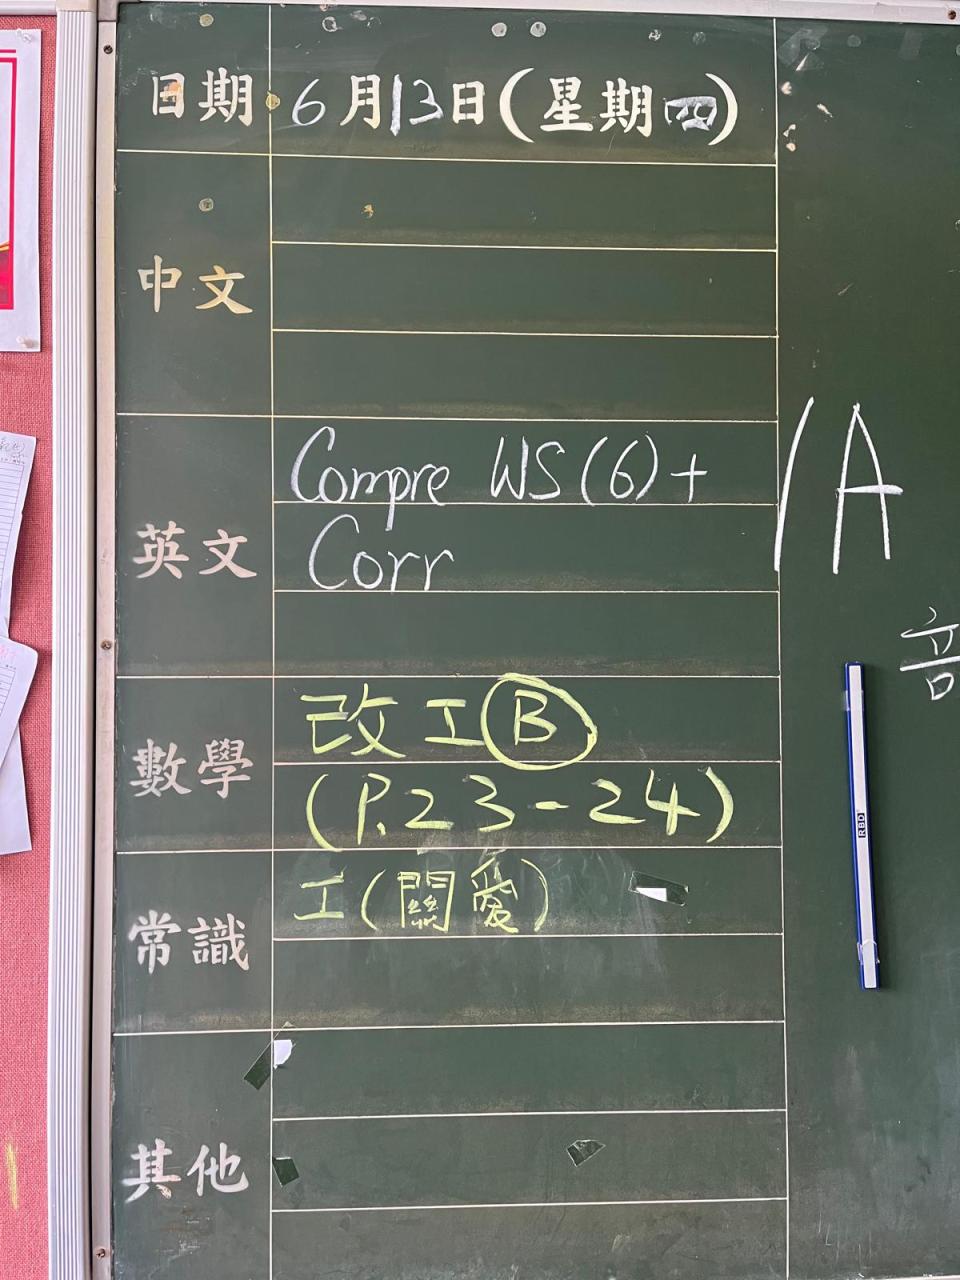 日期 6月13日(星期四)
中文
英文
Compre WS(6)+
Corr
數學
改工Ⓑ
(P.23-24)
常識
工(關愛)
其他
1A
音
RBD